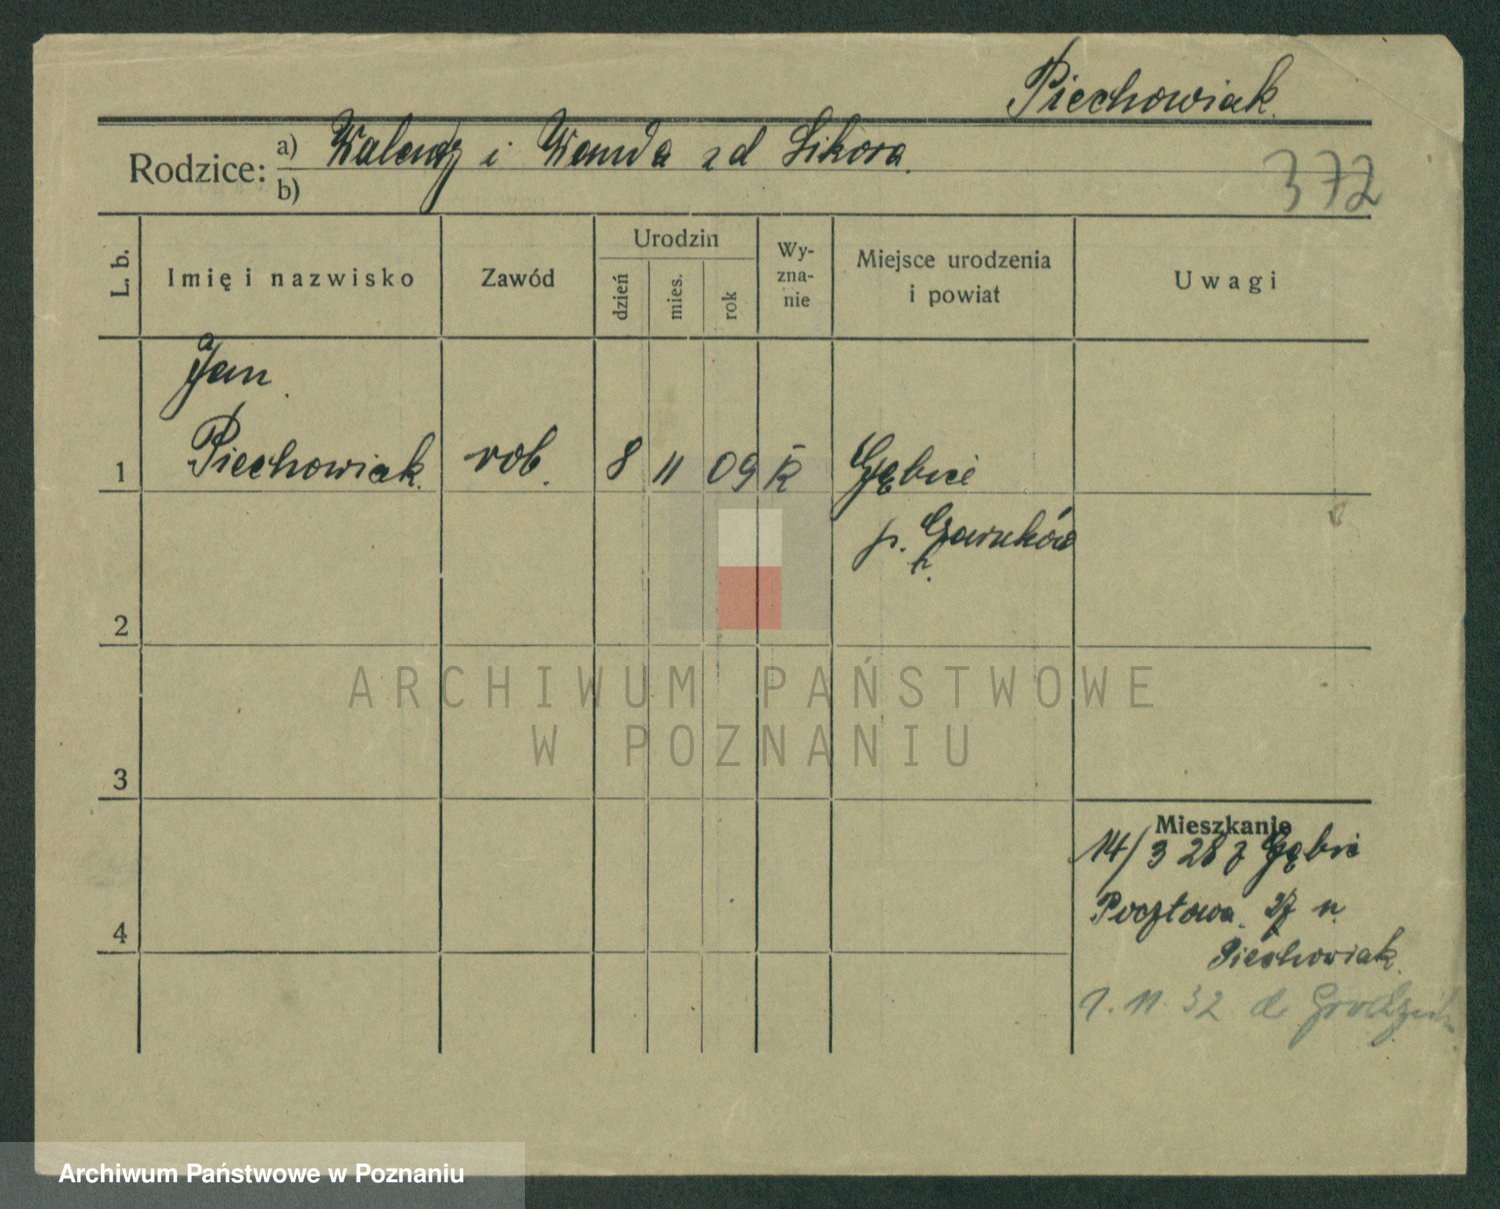 Piechowiak
Rodzice: a) Walenty i Wanda zd Sikora.
b)
372
L. b.
Imię i nazwisko
Zawód
Urodzin
dzień
mies.
rok
Wy-
zna-
nie
Miejsce urodzenia
i powiat
Uwagi
Jan
1 Piechowiak. rob. 8 11 09 R̄ Gębice
p. Czarnków
2
3
4
Mieszkanie
14/3 28 z Gębic
Pocztowa 27 u
Piechowiak.
1. 11. 32 d Grodzisk
ARCHIWUM PAŃSTWOWE
W POZNANIU
Archiwum Państwowe w Poznaniu